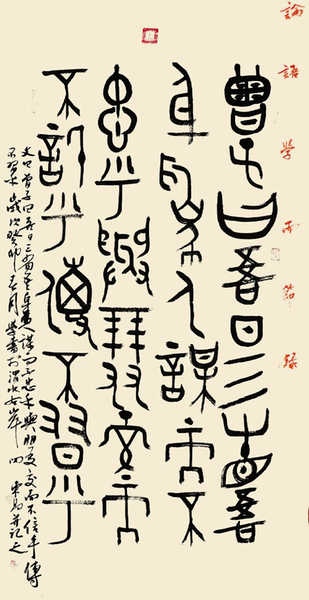 論語學而節錄
曾子曰吾日三省吾
身為人謀而不
忠乎與朋友交而
不信乎傳不習乎
文曰曾子曰吾日三省吾身為人謀而不忠乎與朋友交而不信乎傳
不習乎 歲次癸卯 月 學書於渭水岸 並記之